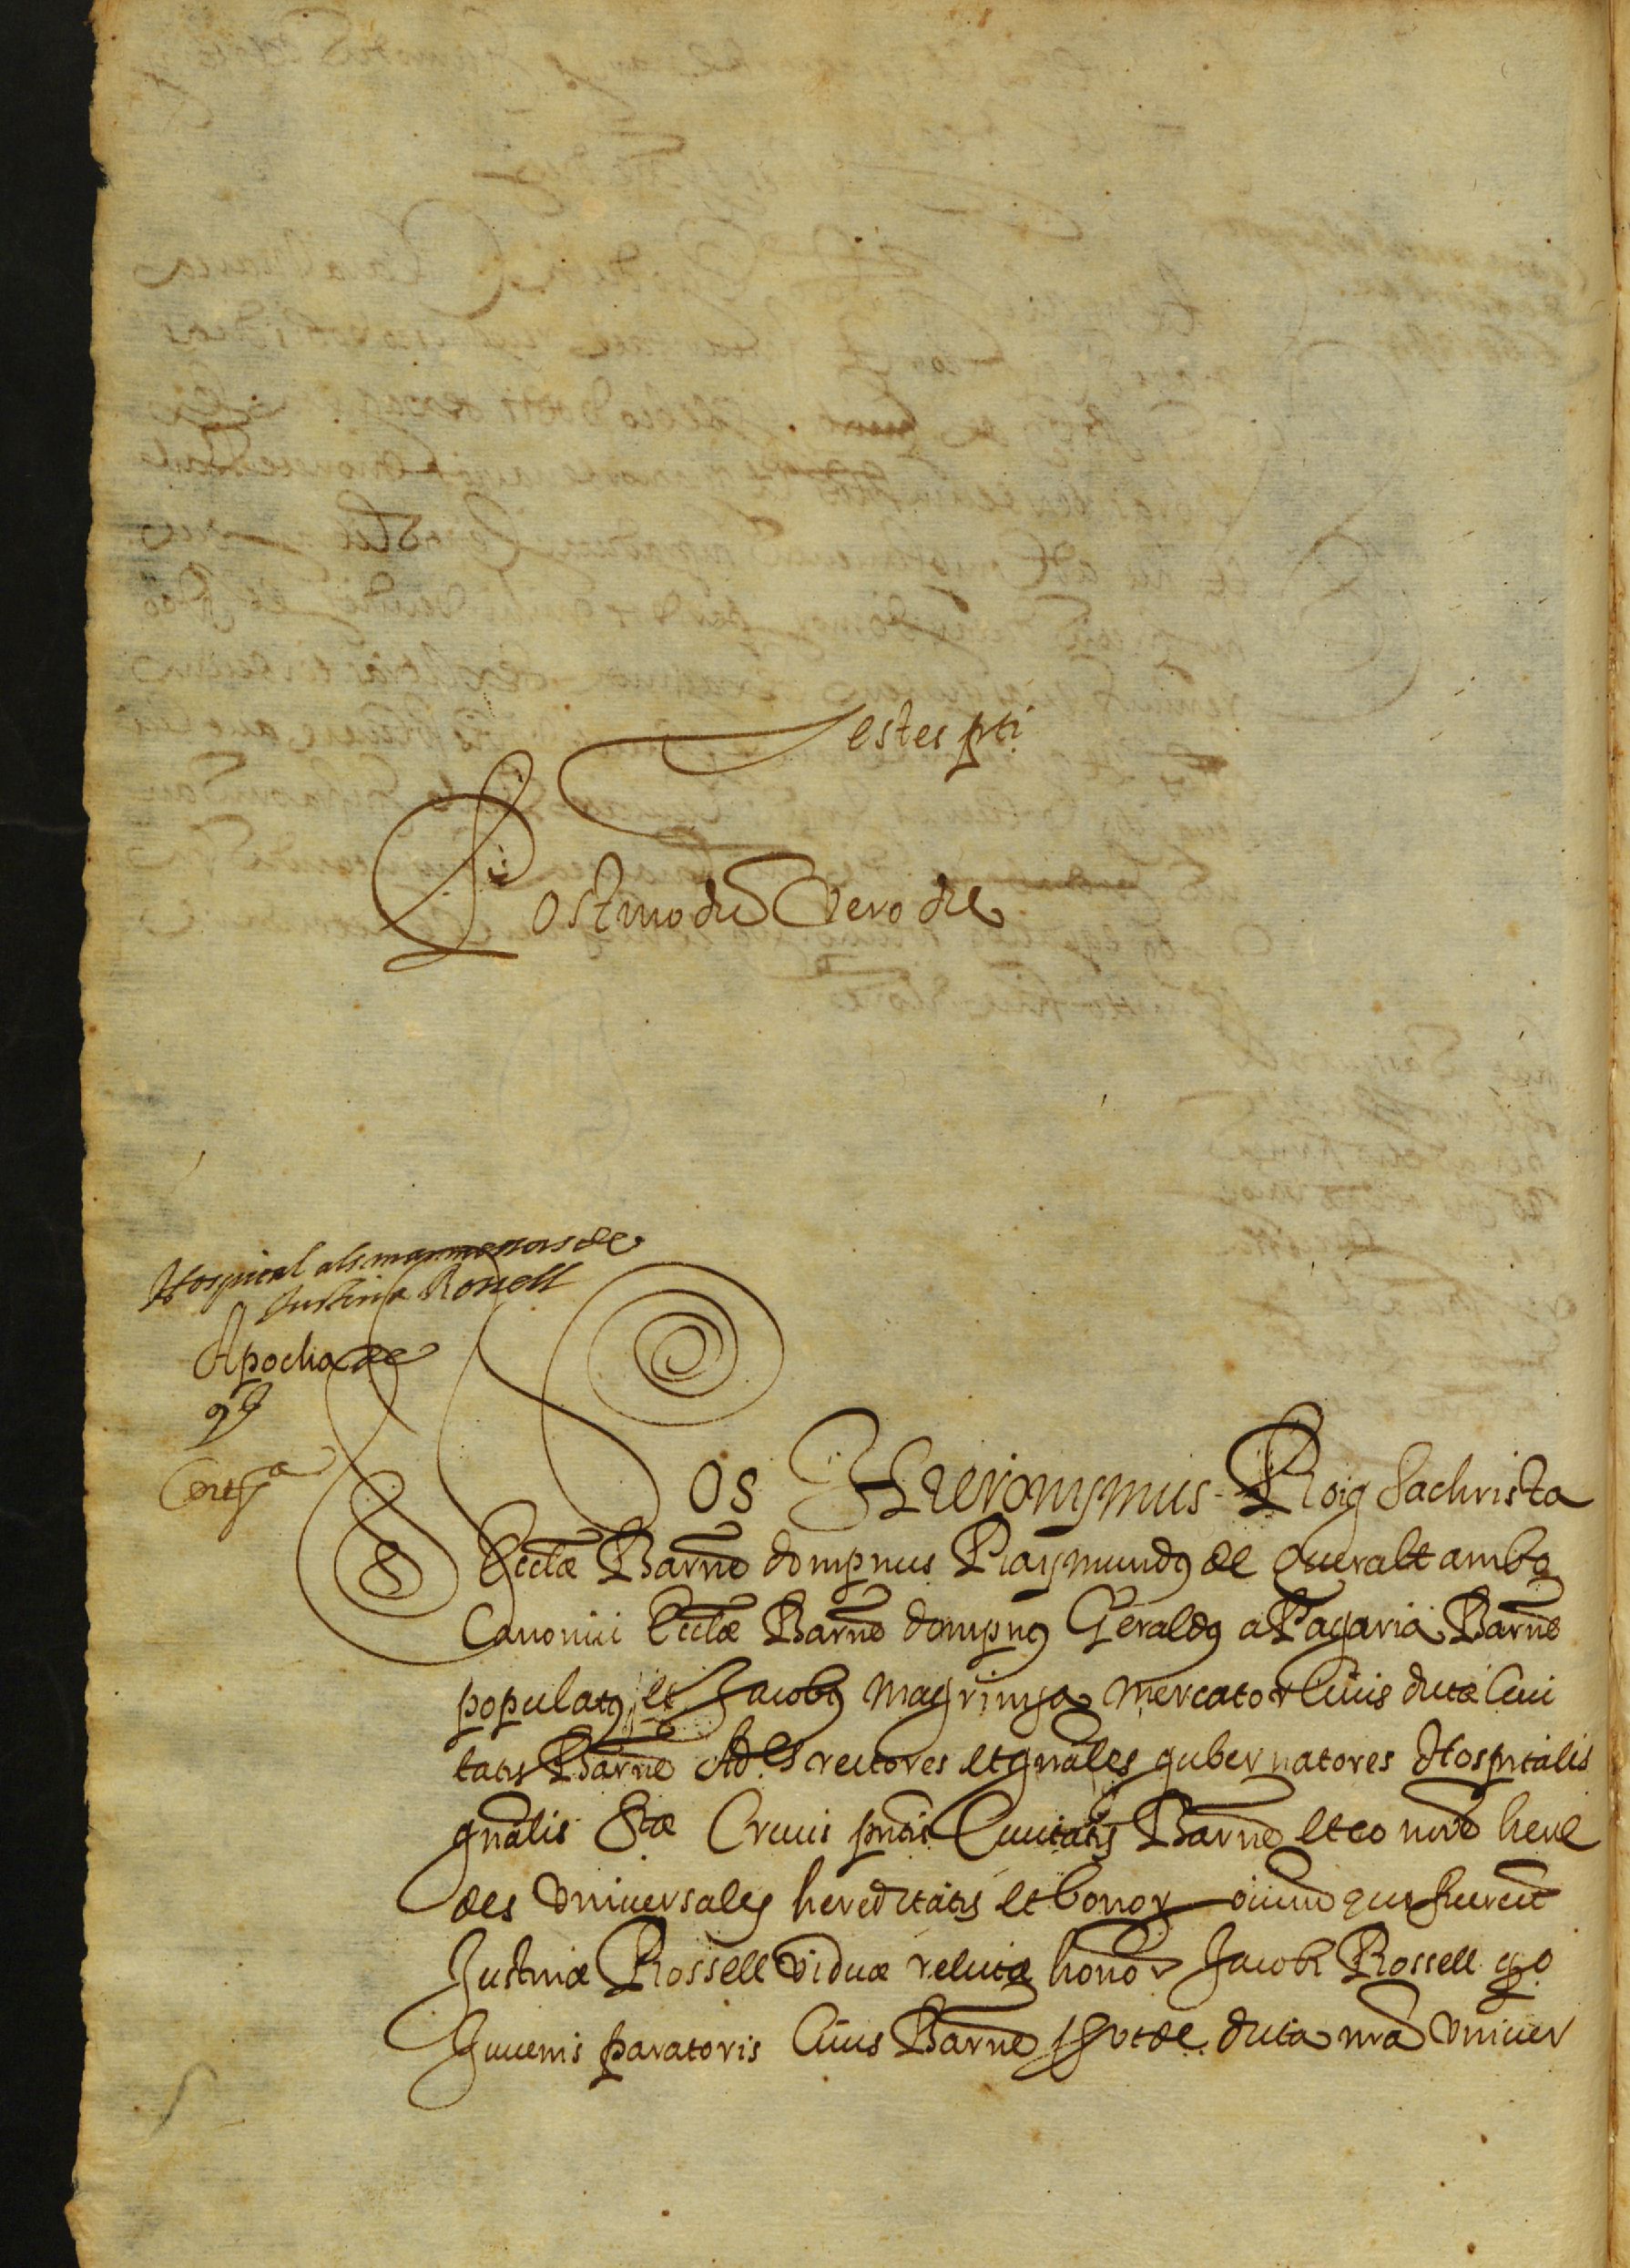 Testes pti
Postmodu Vero die
Hospital als marmessors de
Justina Rossell
Apocha de
Certfa
Nos Hieronymus Roig Sachrista
Ecctæ Barne dompnus Raymundq de Queralt ambo
Canonici Ecctæ Barne dompnq Geraldq a Pagaria Barne
populatq et Jacobq Magrinya mercator Civis dictæ Civi
tatis Barne Ad
rectores et gnales gubernatores Hospitalis
gnalis Stæ Crucis pntis Civitatis Barne et eo nore here
des Universales hereditatis et bonor oium que fuerut
Justinæ Rossell viduæ relictæ honor Jacobi Rossell qo
Juvenis paratoris Civis Barne put de dicta nra Univer